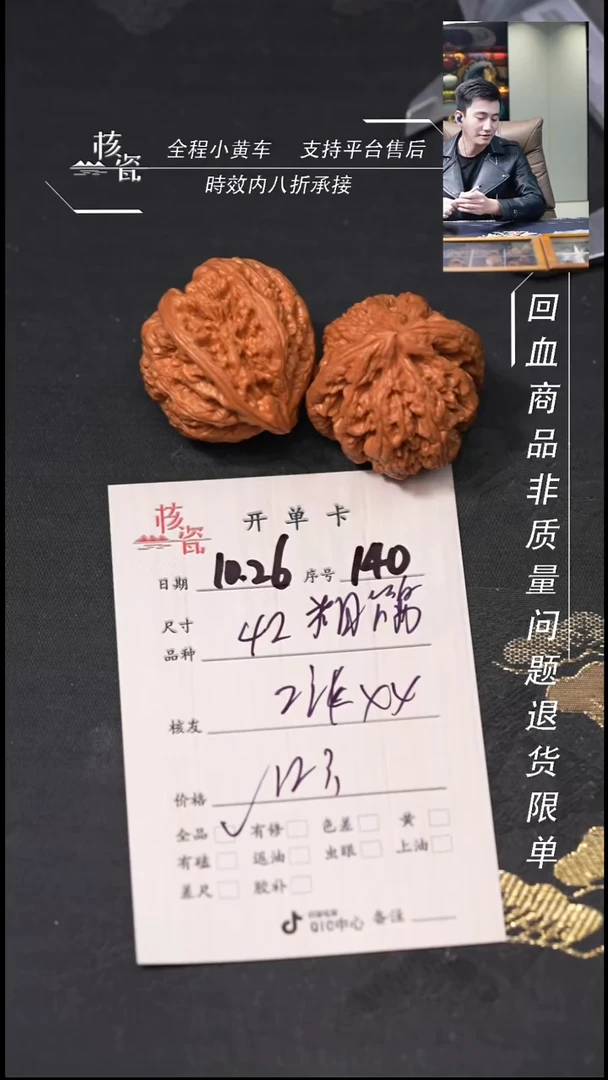 核瓷
全程小黄车 支持平台售后
時效内八折承接
回血商品非质量问题退货限单
核瓷 开单卡
日期 10.26 序号 140
尺寸
品种 42
核友
价格
全品 有修 色差 黄
有磕 返油 虫眼 上油
差尺 胶补
QIC中心 备注